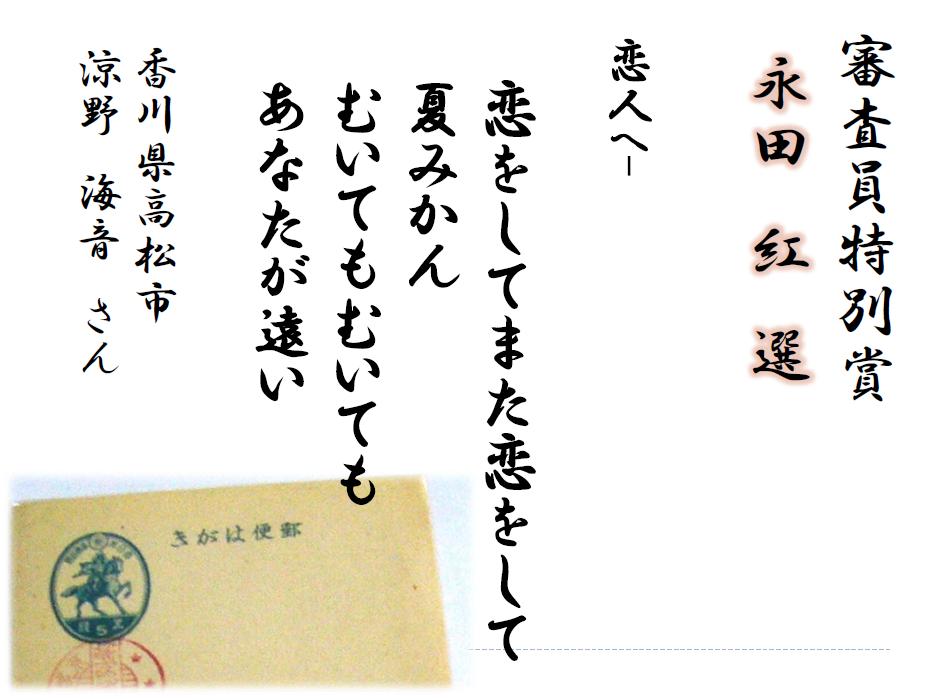 審査員特別賞
永田 紅 選
恋人へ―
恋をしてまた恋をして
夏みかん
むいてもむいても
あなたが遠い
香川県高松市
涼野 海音 さん
きがは便郵